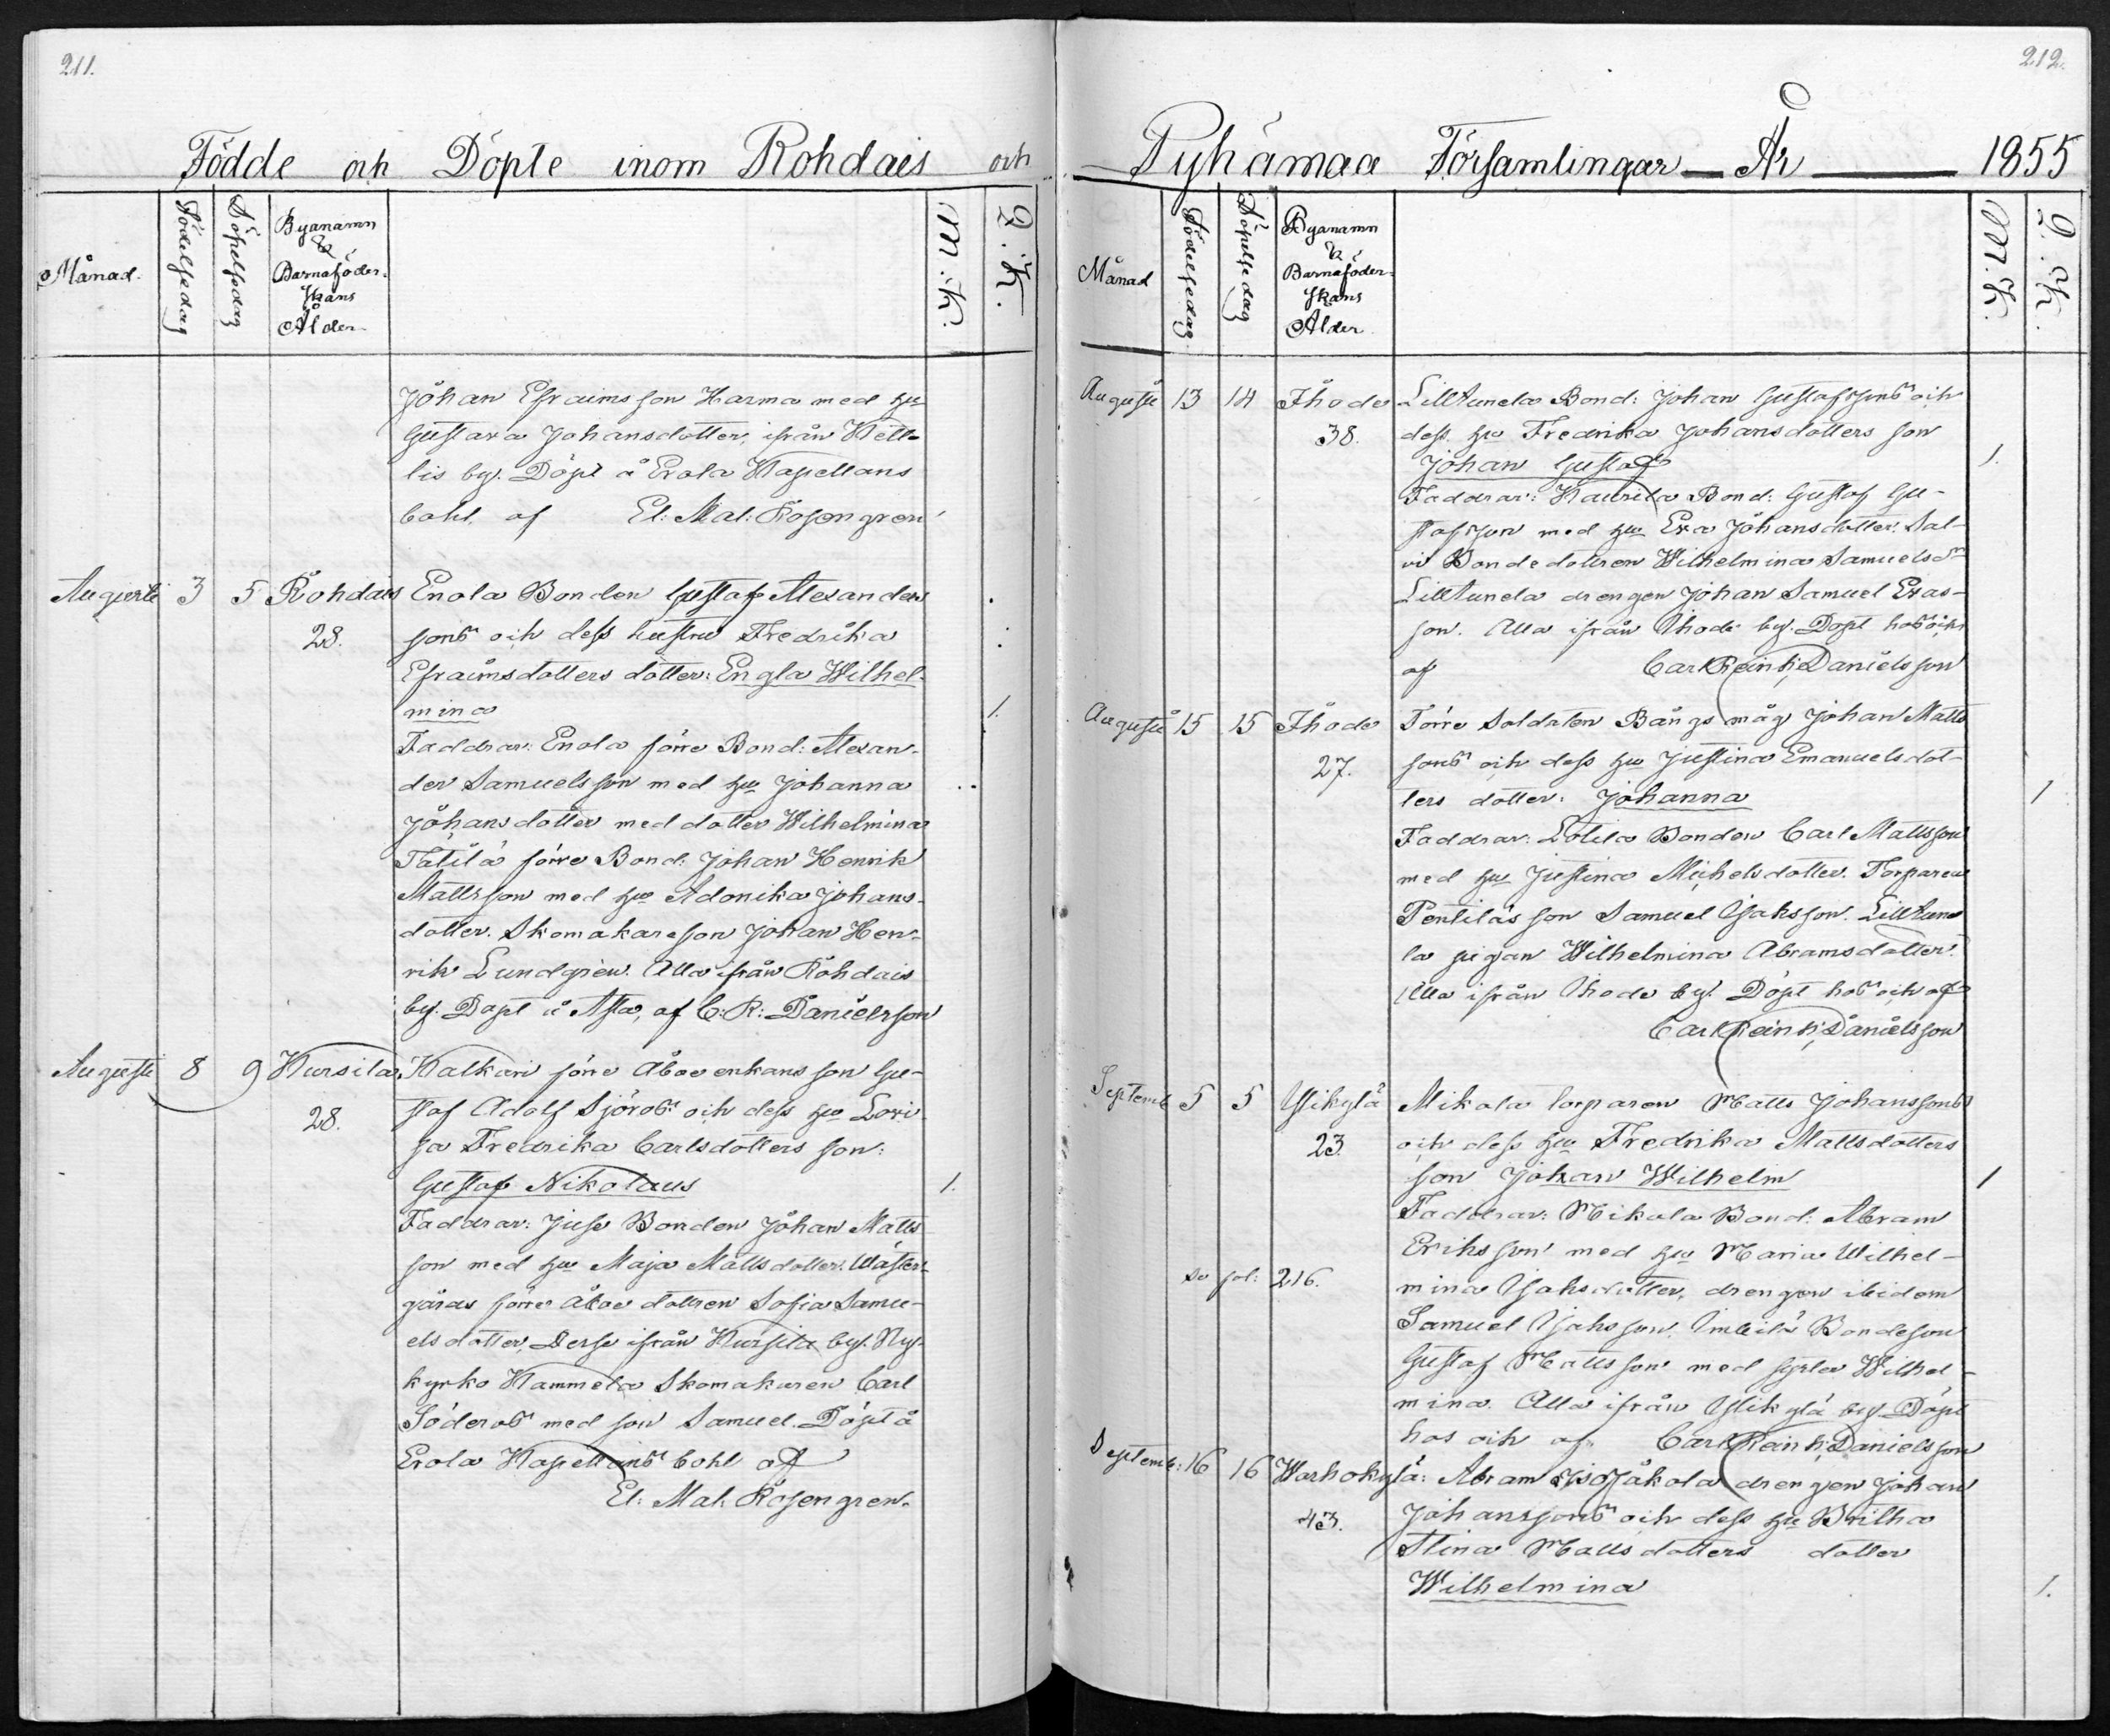 211.
Födde och Döpte inom Rohdais och
Månad.
Födelsedag
Döpelsedag
Byanamn
&
Barnaföder-
skans
Ålder
M.K.
Q.K.
Johan Efraimsson Harma med hu
Gustava Johansdotter, ifrån Ketta-
lis by. Döpt å Erola Kapellans
bohl af El: Mal: Rosengren
Augusti 3 5 Rohdais Enola Bonden Gustaf Alexanders
28. sons och dess hustru Fredrika
Efraimsdotters dotter: Engla Wilhel-
mina 1.
Faddrar: Enola förre Bond: Alexan-
der Samuelsson med hu Johanna
Johansdotter med dotter Wilhelmina
Tätilä förre Bond: Johan Henrik
Mattsson med hu Adonika Johans-
dotter. Skomakareson Johan Hen-
rik Lundgren. Alla ifrån Rohdais
by. Döpt å af C: R: Danielsson
Augusti 8 9 Kursila Kalkari förre Åboenkans son Gu-
28. staf Adolf och dess hu Lovi-
sa Fredrika Carlsdotters son:
Gustaf Nikolaus 1.
Faddrar: Juse Bonden Johan Matts
son med hu Maja Mattsdotter. Wäster-
gårds förre Åboe dottren Sofia Samu-
elsdotter, Desse ifrån Kursila by. Ny-
kyrko Kammela Skomakaren Carl
med son Samuel. Döpt å
Erola Kapellans bohl af
El: Mal: Rosengren.
212.
Pyhämaa Församlingar — År — 1855
Månad
Födelsedag
Döpelsedag
Byanamn
&
Barnaföder-
skans
Ålder
M.K.
Q.K.
Augusti 13 14 Ihode Lilltunela Bond: Johan Gustafssons och
38. dess hu Fredrika Johansdotters son
Johan Gustaf 1.
Faddrar: Kaurila Bond: Gustaf Gu-
stafsson med hu Eva Johansdotter. Sal-
vi Bondedottren Wilhelmina Samuelsdr
Lilltunela drengen Johan Samuel Eras-
son. Alla ifrån Ihode by. Döpt hos och
af Carl Reinh: Danielsson
Augusti 15 15 Ihode Förre Soldaten Bångs måg Johan Matts
27. sons och dess hu Justina Emanuelsdot-
ters dotter: Johanna 1
Faddrar: Lotila Bonden Carl Mattsson
med hu Justina Michelsdotter. Torparen
Pentiläs son Samuel Isaksson. Lilltune
la pigan Wilhelmina Abramsdotter.
Alla ifrån Ihode by. Döpt hos och af
Carl Reinh: Danielsson
Septemb 5 5 Ylikylä Mikola torparen Matts Johanssons
23. och dess hu Fredrika Mattsdotters
son Johan Wilhelm 1
Faddrar: Mikola Bond: Abram
Eriksson med hu Maria Wilhel-
se fol: 216. mina Isaksdotter, drengen ibidem
Samuel Isaksson. Bondeson
Gustaf Mattsson med Wilhel-
mina. Alla ifrån Ylikylä by. Döpt
hos och af Carl Reinh: Danielsson
Septemb: 16 16 Warhokylä: Abram Jakola drengen Johan
43. Johanssons och dess hu Britha
Stina Mattsdotters dotter
Wilhelmina 1.